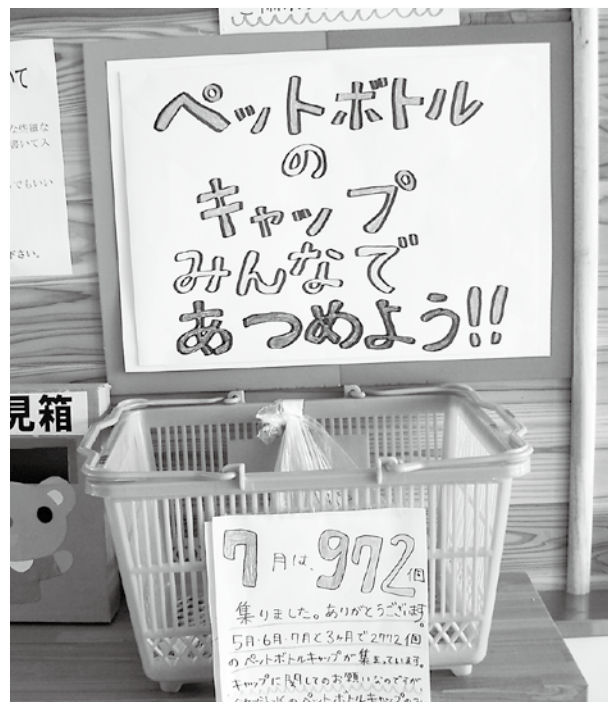 ペットボトル
の
キャップ
みんなで
あつめよう!!
見箱
7月は、972個
集りました。ありがとうございます。
5月・6月・7月と3ヶ月で2772個
のペットボトルキャップが集まっています。
キャップに関してのお願いなのですが、
な些細な
書いて入
でもいい
下さい。